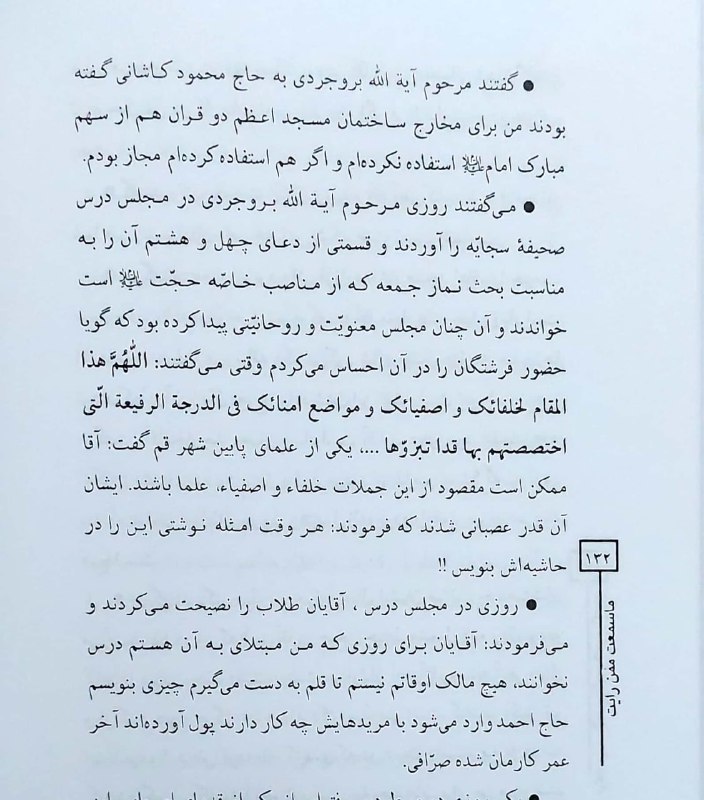 ● گفتند مرحوم آیة الله بروجردی به حاج محمود کاشانی گفته
بودند من برای مخارج ساختمان مسجد اعظم دو قران هم از سهم
مبارک امام علیه‌السلام استفاده نکرده‌ام و اگر هم استفاده کرده‌ام مجاز بودم.
● می‌گفتند روزی مرحوم آیة الله بروجردی در مجلس درس
صحیفهٔ سجایّه را آوردند و قسمتی از دعای چهل و هشتم آن را به
مناسبت بحث نماز جمعه که از مناصب خاصّه حجّت علیه‌السلام است
خواندند و آن چنان مجلس معنویّت و روحانیّتی پیدا کرده بود که گویا
حضور فرشتگان را در آن احساس می‌کردم وقتی می‌گفتند: اللّهُمَّ هذا
المقام لخلفائک و اصفیائک و مواضع امنائک فی الدرجة الرفیعة الّتی
اختصصتهم بها قدا تبزوّها ....، یکی از علمای پایین شهر قم گفت: آقا
ممکن است مقصود از این جملات خلفاء و اصفیاء، علما باشند. ایشان
آن قدر عصبانی شدند که فرمودند: هر وقت امثله نوشتی این را در
حاشیه‌اش بنویس !!
● روزی در مجلس درس ، آقایان طلاب را نصیحت می‌کردند و
می‌فرمودند: آقایان برای روزی که من مبتلای به آن هستم درس
نخوانند، هیچ مالک اوقاتم نیستم تا قلم به دست می‌گیرم چیزی بنویسم
حاج احمد وارد می‌شود با مریدهایش چه کار دارند پول آورده‌اند آخر
عمر کارمان شده صرّافی.
۱۳۲
ماسمعت ممّن رایت